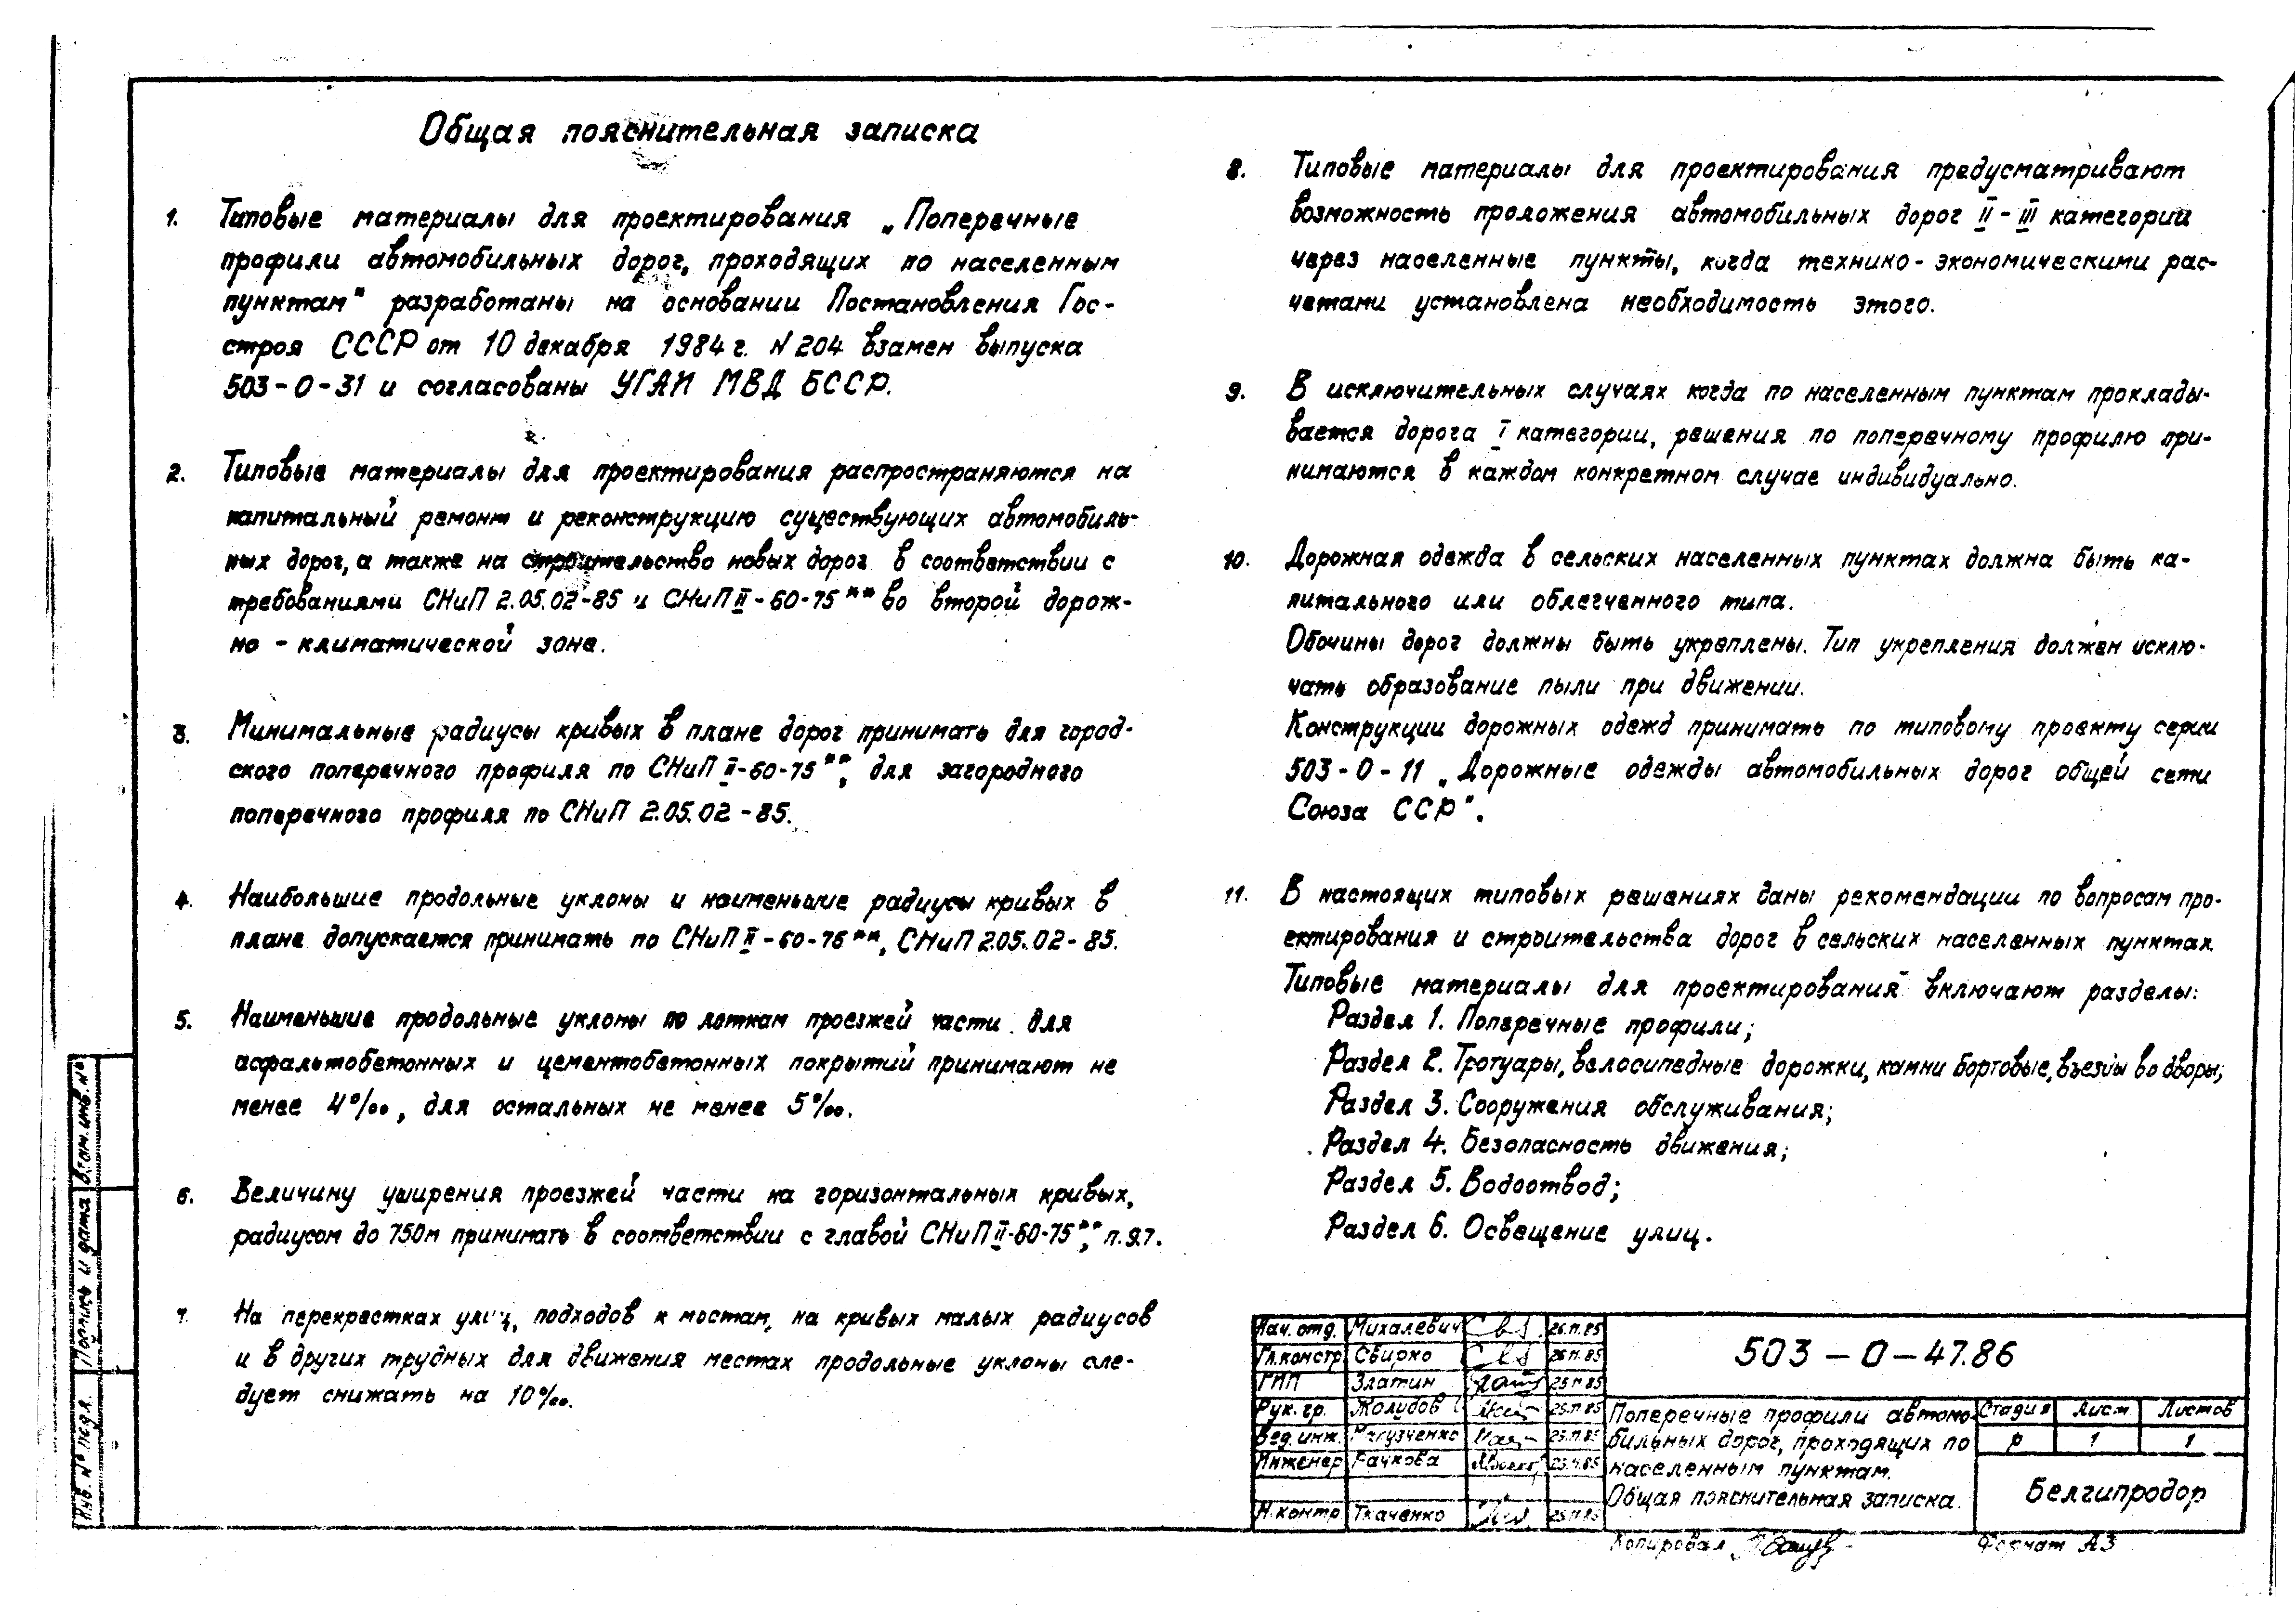 Общая пояснительная записка
1. Типовые материалы для проектирования „Поперечные
профили автомобильных дорог, проходящих по населенным
пунктам" разработаны на основании Постановления Гос-
строя СССР от 10 декабря 1984 г. N 204 взамен выпуска
503-0-31 и согласованы УГАИ МВД БССР.
2. Типовые материалы для проектирования распространяются на
капитальный ремонт и реконструкцию существующих автомобиль-
ных дорог, а также на строительство новых дорог в соответствии с
требованиями СНиП 2.05.02-85 и СНиП II-60-75** во второй дорож-
но - климатической зоне.
3. Минимальные радиусы кривых в плане дорог принимать для город-
ского поперечного профиля по СНиП II-60-75**, для загородного
поперечного профиля по СНиП 2.05.02-85.
4. Наибольшие продольные уклоны и наименьшие радиусы кривых в
плане допускается принимать по СНиП II-60-75**, СНиП 2.05.02-85.
5. Наименьшие продольные уклоны по лоткам проезжей части для
асфальтобетонных и цементобетонных покрытий принимают не
менее 4‰, для остальных не менее 5‰.
6. Величину уширения проезжей части на горизонтальных кривых,
радиусом до 750м принимать в соответствии с главой СНиП II-60-75**, п.9.7.
7. На перекрестках улиц, подходов к мостам, на кривых малых радиусов
и в других трудных для движения местах продольные уклоны сле-
дует снижать на 10‰.
8. Типовые материалы для проектирования предусматривают
возможность проложения автомобильных дорог II - III категории
через населенные пункты, когда технико - экономическими рас-
четами установлена необходимость этого.
9. В исключительных случаях когда по населенным пунктам проклады-
вается дорога I категории, решения по поперечному профилю при-
нимаются в каждом конкретном случае индивидуально.
10. Дорожная одежда в сельских населенных пунктах должна быть ка-
питального или облегченного типа.
Обочины дорог должны быть укреплены. Тип укрепления должен исклю-
чать образование пыли при движении.
Конструкции дорожных одежд принимать по типовому проекту серии
503-0-11 „Дорожные одежды автомобильных дорог общей сети
Союза ССР".
11. В настоящих типовых решениях даны рекомендации по вопросам про-
ектирования и строительства дорог в сельских населенных пунктах.
Типовые материалы для проектирования включают разделы:
Раздел 1. Поперечные профили;
Раздел 2. Тротуары, велосипедные дорожки, камни бортовые, въезды во дворы;
Раздел 3. Сооружения обслуживания;
Раздел 4. Безопасность движения;
Раздел 5. Водоотвод;
Раздел 6. Освещение улиц.
Нач. отд. Михалевич 26.11.85
Гл.констр. Сбирко 26.11.85
ГИП Златин 25.11.85
Рук. гр. Жолудов 25.11.85
Вед. инж. 25.11.85
Инженер Рачкова 25.11.85
Н.контр. Ткаченко 25.11.85
503-0-47.86
Поперечные профили автомо-
бильных дорог, проходящих по
населенным пунктам.
Общая пояснительная записка.
Стадия Лист Листов
Р 1 1
Белгипродор
Копировал
Формат А3
Инв. № подл. Подпись и дата Взам. инв. №